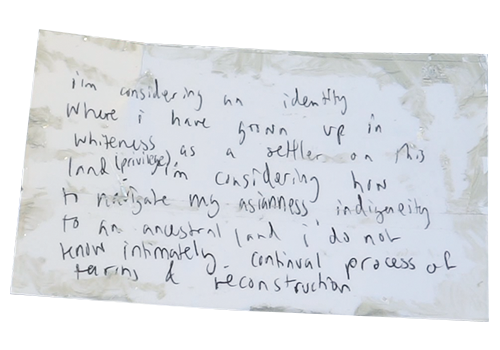 i'm considering an identity
where i have grown up in
whiteness as a settler on this
land (privilege), i'm considering how
to navigate my asianness indigeneity
to an ancestral land i do not
know intimately. continual process of
tearing & reconstruction